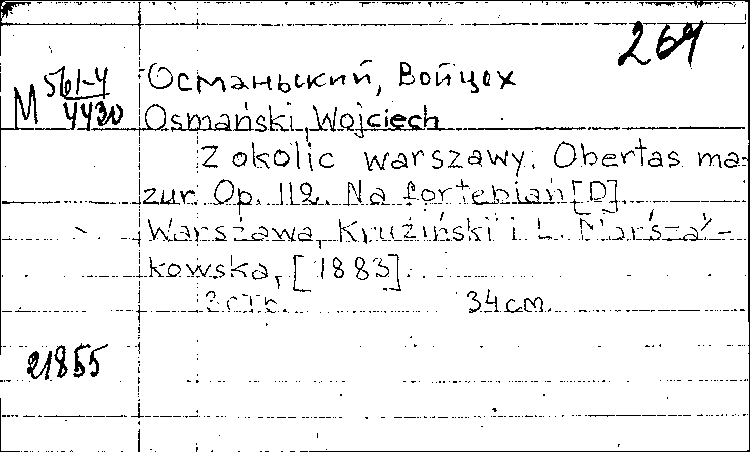 269
М 561-4
4430
Османьский, Войцех
Osmański, Wojciech
Z okolic warszawy. Obertas ma-
zur. Op. 112. Na fortepian [D].
Warszawa, Kruziński i L.
kowska, [1883].
3 стр. 34 cm.
21855